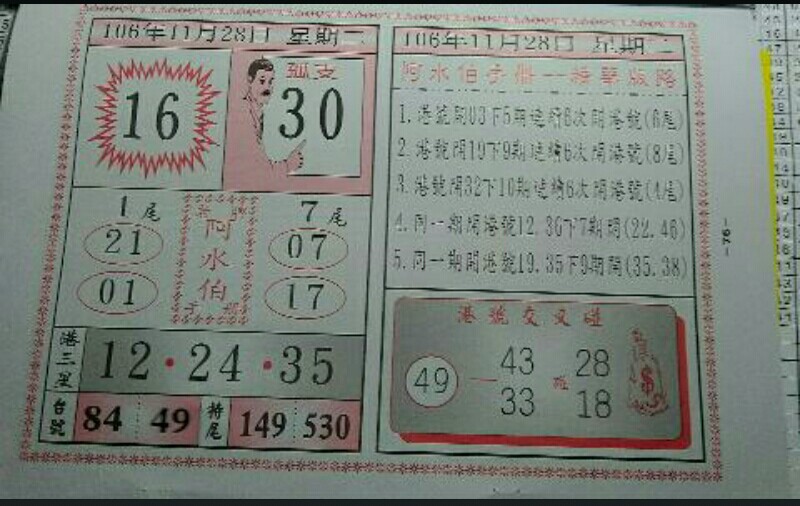 106年11月28日 星期二
16
孤支
30
1尾
7尾
21
07
老牌
阿水伯
手冊
01
17
港三星
12·24·35
台號
84 49
特尾
149 530
106年11月28日 星期二
阿水伯手冊一接單版路
1.港號開03下5期連續6次開港號(6尾)
2.港號開19下9期連續6次開港號(8尾)
3.港號開32下10期連續6次開港號(4尾)
4.同一期開港號12.36下7期開(22.46)
5.同一期開港號19.35下9期開(35.38)
港號交叉碰
49
43
33
碰
28
18
$
-76-